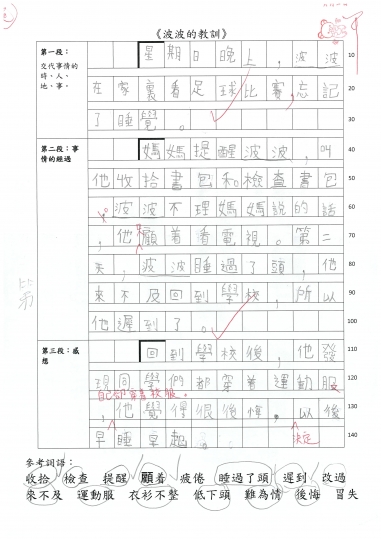 《波波的教訓》
第一段：
交代事情的
時、人、
地、事。
星期日晚上，波波
10
在家裏看足球比賽，忘記
20
了睡覺。
30
第二段：事
情的經過
媽媽提醒波波，叫
40
他收拾書包和檢查書包
50
，波波不理媽媽說的話
60
，他顧着看電視。第二
70
天，波波睡過了頭，他
80
來不及回到學校，所以
90
他遲到了。
100
110
第三段：感
想
回到學校後，他發
現同學們都穿着運動服
120
自己卻穿着校服。
，他覺得很後悔。以後
130
早睡早起。
決定
140
參考詞語：
收拾 檢查 提醒 顧着 疲倦 睡過了頭 遲到 改過
來不及 運動服 衣衫不整 低下頭 難為情 後悔 冒失